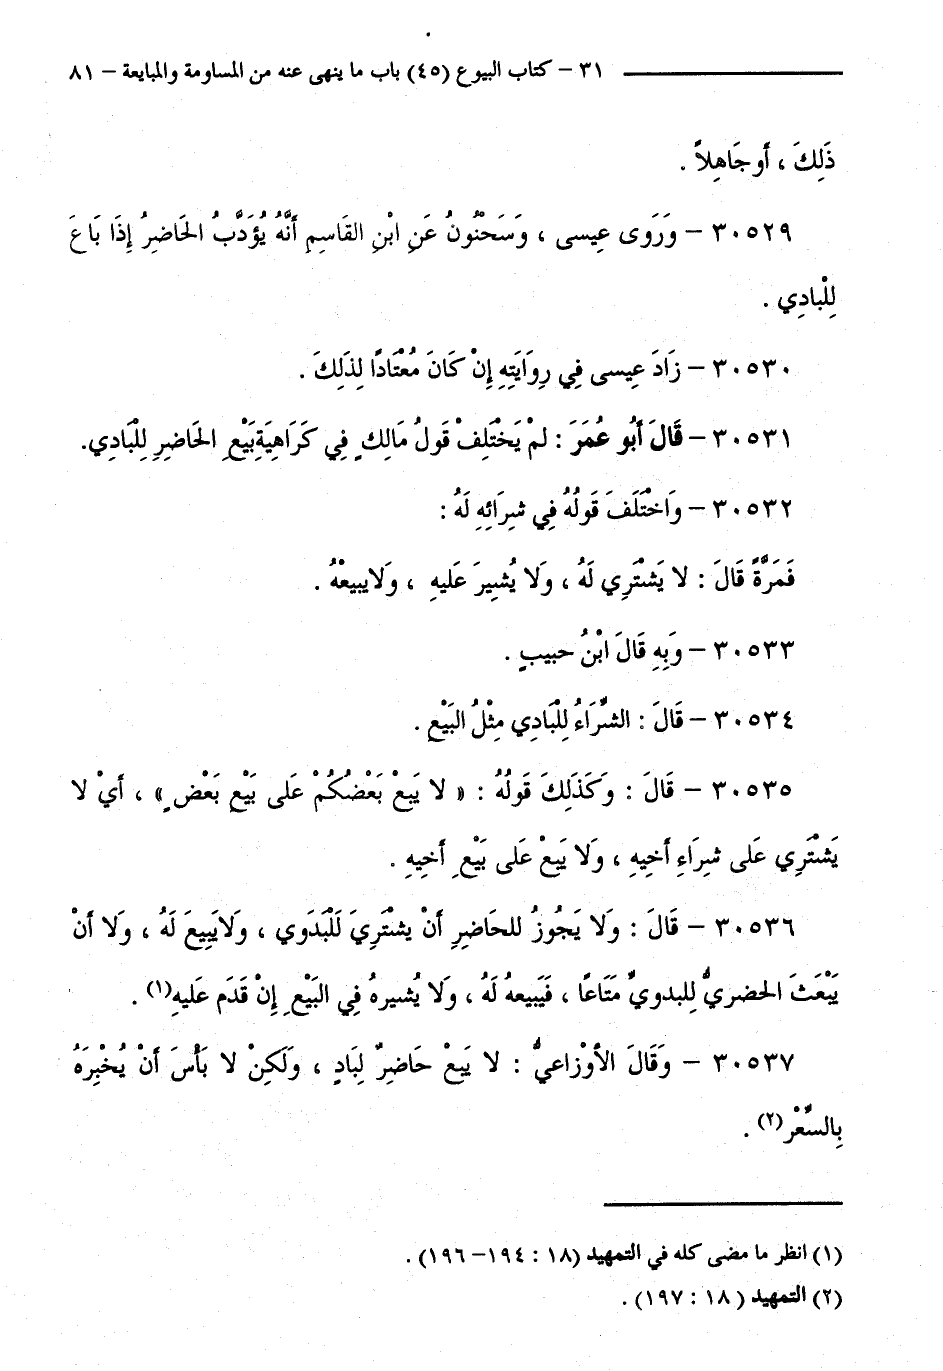 ٣١ – كتاب البيوع (٤٥) باب ما ينهى عنه من المساومة والمبايعة – ٨١
ذَلِكَ ، أَو جَاهِلاً .
٣٠٥٢٩ – وَرَوَى عِيسى ، وَسَحْنُونُ عَنِ ابْنِ القَاسِمِ أَنَّهُ يُؤَدَّبُ الحَاضِرُ إِذَا بَاعَ
لِلْبادِي .
٣٠٥٣٠ – زَادَ عِيسى فِي رِوَايَتِهِ إِنْ كَانَ مُعْتَادًا لِذَلِكَ .
٣٠٥٣١ – قَالَ أَبُو عُمَرَ : لمْ يَخْتَلِفْ قَولُ مَالِكٍ فِي كَرَاهِيَةِ بَيْعِ الحَاضِرِ لِلْبَادِي.
٣٠٥٣٢ – وَاخْتَلَفَ قَولُهُ فِي شِرَائِهِ لَهُ :
فَمَرَّةً قَالَ : لا يَشْتَرِي لَهُ ، وَلا يُشِيرَ عَليهِ ، وَلايبيعْهُ .
٣٠٥٣٣ – وَبِهِ قَالَ ابْنُ حبيبٍ .
٣٠٥٣٤ – قَالَ : الشِّرَاءُ لِلْبَادِي مِثْلُ البَيْعِ .
٣٠٥٣٥ – قَالَ : وَكَذَلِكَ قَولُهُ : « لا يَبِعْ بَعْضُكُمْ عَلى بَيْعِ بَعْضٍ » ، أَيْ لا
يَشْتَرِي عَلى شِرَاءِ أَخيهِ ، وَلا يَبِعْ عَلى بَيْعِ أَخِيهِ .
٣٠٥٣٦ – قَالَ : وَلا يَجُوزُ للحَاضِرِ أَنْ يشْتَرِيَ لَلْبَدَوي ، وَلايَبِيعَ لَهُ ، وَلا أَنْ
يَبْعَثَ الحضريُّ لِلبدويِّ مَتَاعًا ، فَيَبيعهُ لَهُ ، وَلا يُشيرهُ فِي البَيْعِ إِنْ قَدَم عَليهِ(١) .
٣٠٥٣٧ – وَقَالَ الأَوْزاعيُّ : لا يَبعْ حَاضِرٌ لِبَادٍ ، وَلَكِنْ لا بَأْسَ أَنْ يُخْبِرَهُ
بِالسِّعْرِ(٢) .
(١) انظر ما مضى كله في التمهيد (١٨ : ١٩٤– ١٩٦) .
(٢) التمهيد ( ١٨ : ١٩٧) .